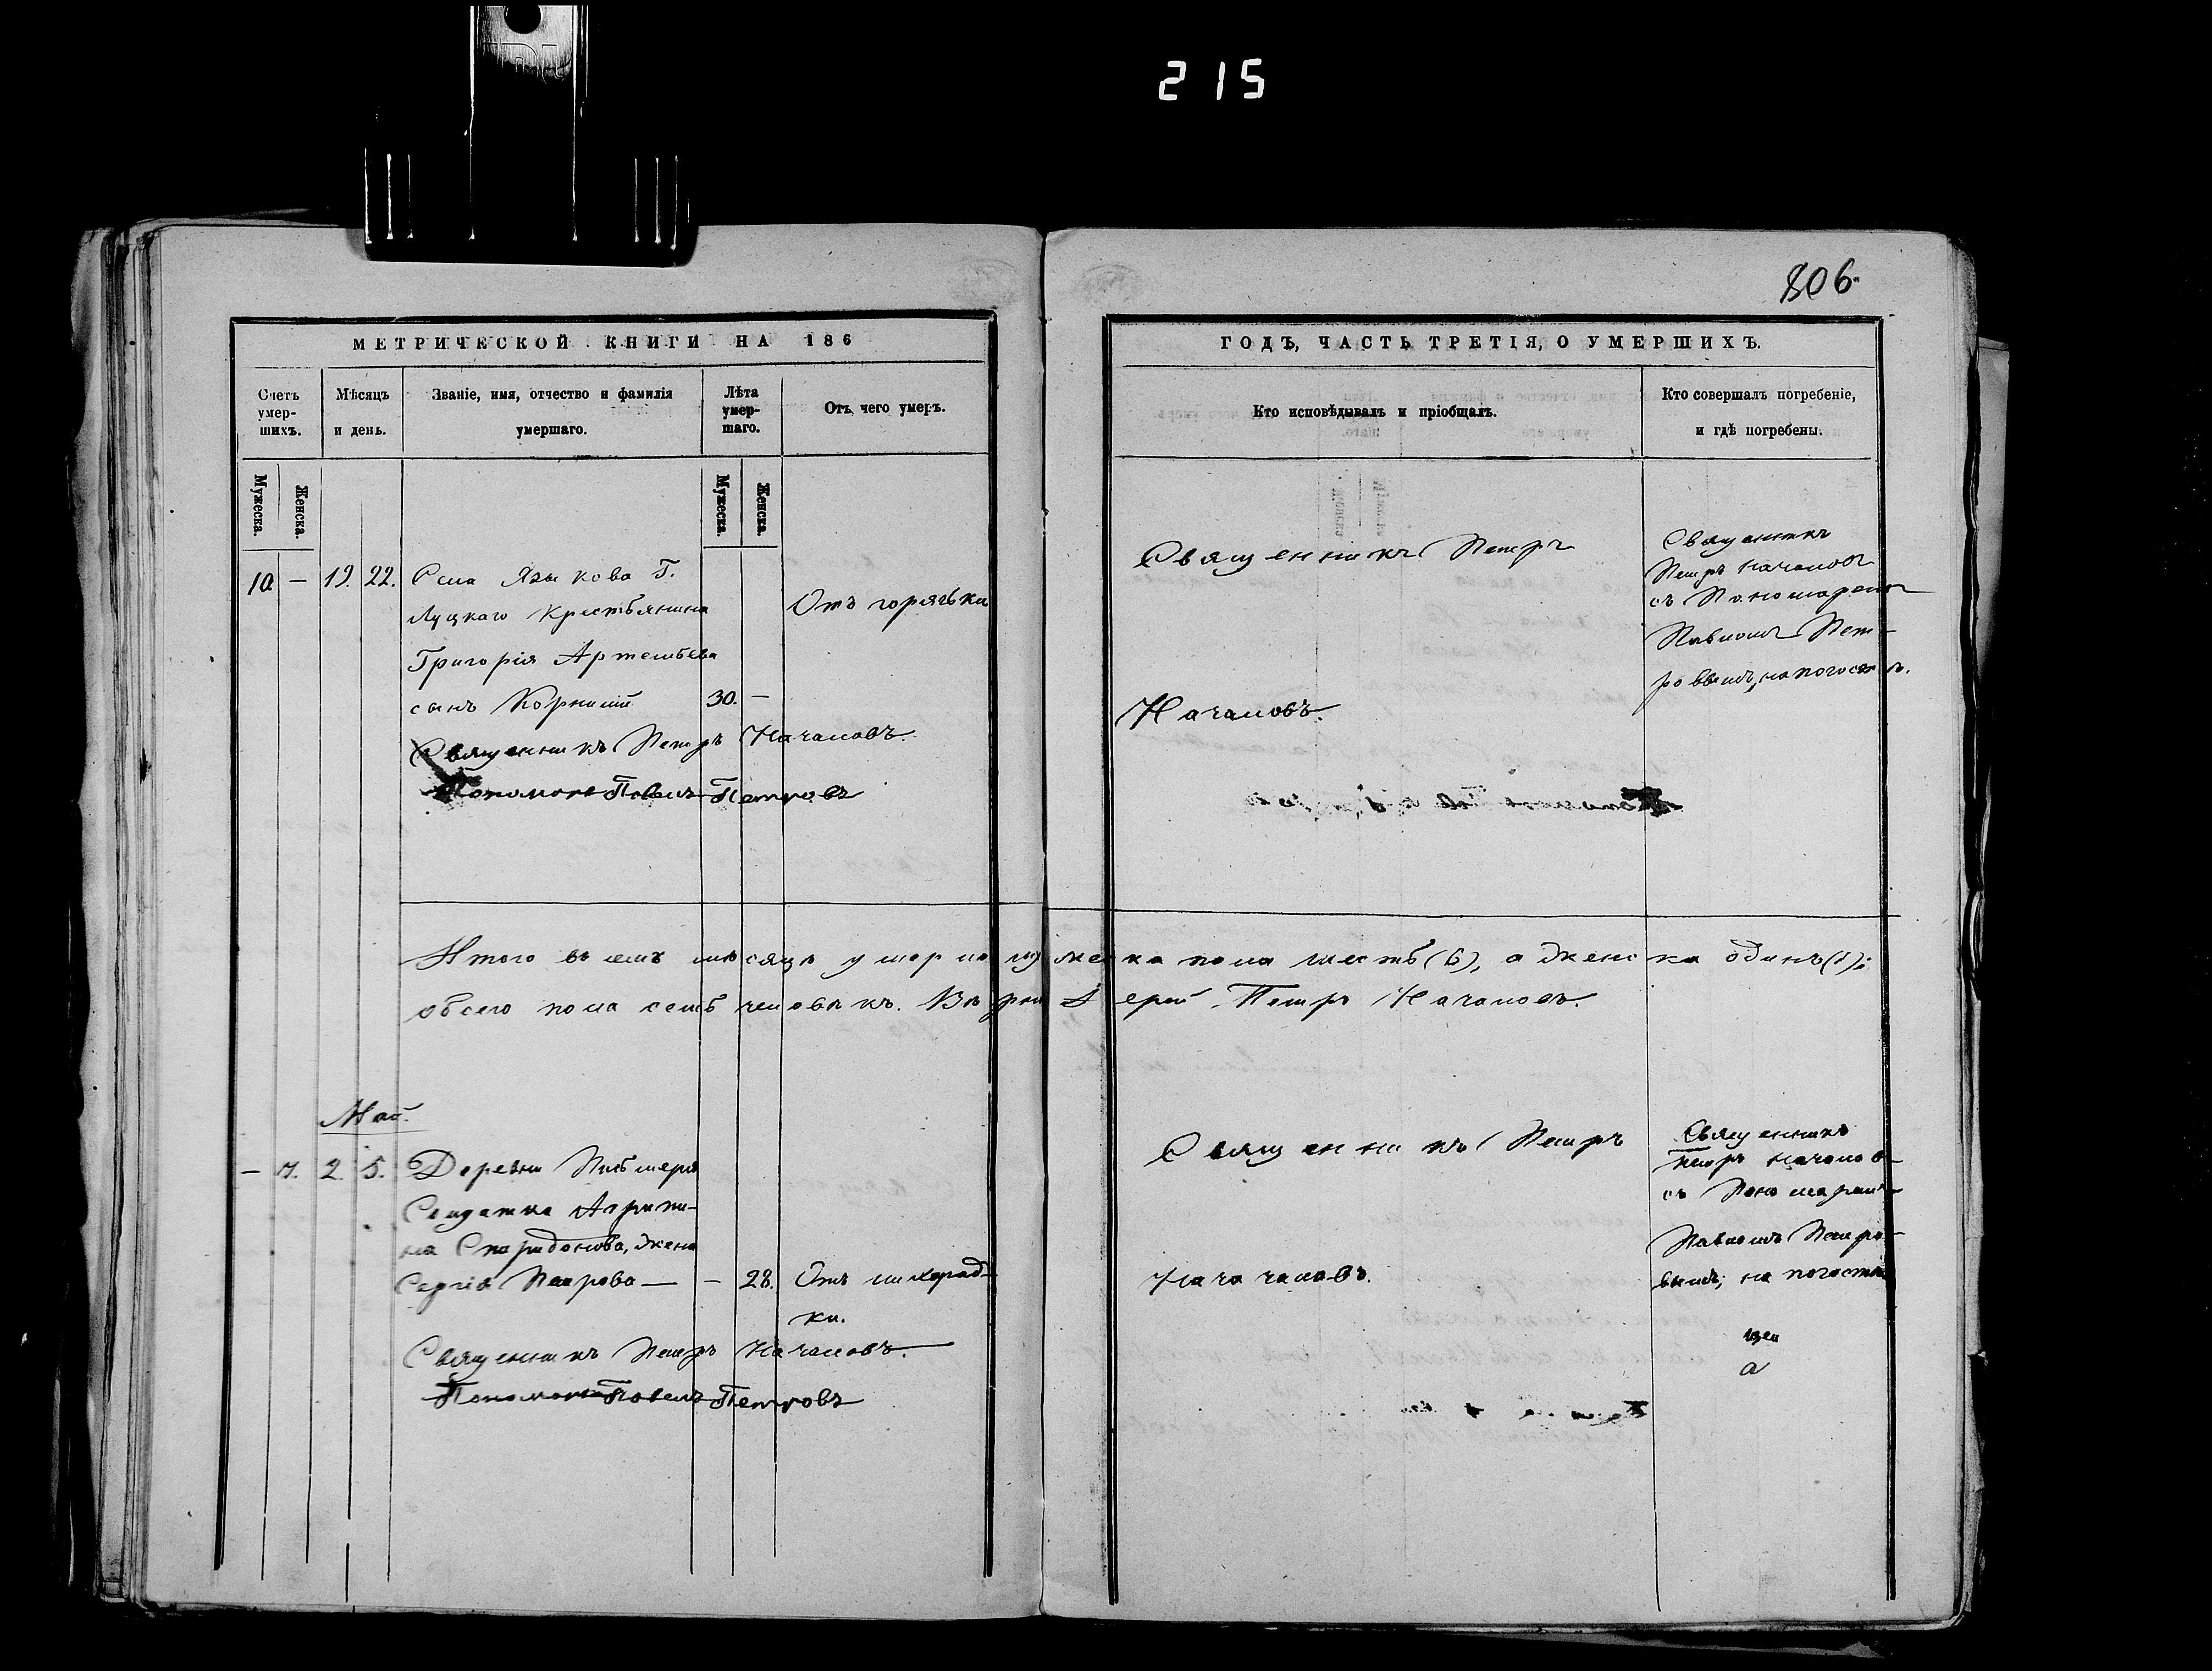 215
806
МЕТРИЧЕСКОЙ КНИГИ НА 186
ГОДЪ, ЧАСТЬ ТРЕТІЯ, О УМЕРШИХЪ.
Счетъ умер-шихъ.
Мѣсяцъ и день.
Званіе, имя, отчество и фамилія умершаго.
Лѣта умер-шаго.
Отъ чего умеръ.
Кто исповѣдывалъ и пріобщалъ.
Кто совершалъ погребеніе, и гдѣ погребены.
Мужеска.
Женска.
Мужеска.
Женска.
10 — 19. 22. Села Языкова Г.
Луцкаго Крестьянина
Григорія Артемьева
сынъ Корнилій 30. —
Отъ горячки
Священникъ Петръ Началовъ.
Пономарь Павелъ Петровъ
Священникъ Петръ
Началовъ.
Священникъ
Петръ Началовъ
съ Пономаремъ
Павломъ Пет-
ровымъ, на погостѣ.
Итого въ семъ мѣсяцѣ умерло мужеска пола шесть (6), а женска одинъ (1);
обоего пола семь человѣкъ. Вѣрны Іерей Петръ Началовъ.
Май.
— 2. 5. Деревни
Солдатка Агрипи-
на Спиридонова, жена
Сергія Петрова — — 28. Отъ лихорад-
ки.
Священникъ Петръ Началовъ.
Пономарь Павелъ Петровъ
Священникъ Петръ
Священникъ
Петръ Началов-
съ Пономаремъ
Павломъ Петро-
вымъ; на погостѣ